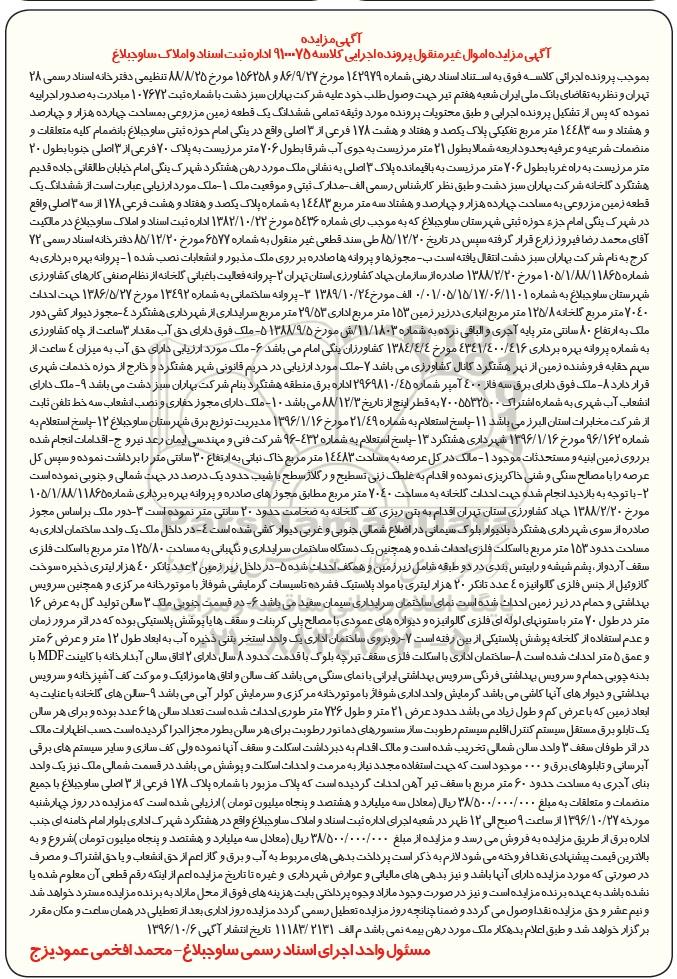 آگهی مزایده
آگهی مزایده اموال غیر منقول پرونده اجرایی کلاسه ۹۱۰۰۰۷۵ اداره ثبت اسناد و املاک ساوجبلاغ
بموجب پرونده اجرائی کلاسه فوق به استناد اسناد رهنی شماره ۱۴۲۹۷۹ مورخ ۸۶/۹/۲۷ و ۱۵۶۲۵۸ مورخ ۸۸/۸/۲۵ تنظیمی دفترخانه اسناد رسمی ۲۸
تهران و نظر به تقاضای بانک ملی ایران شعبه هفتم تیر جهت وصول طلب خود علیه شرکت بهاران سبز دشت با شماره ثبت ۱۰۷۶۷۲ مبادرت به صدور اجراییه
نموده که پس از تشکیل پرونده اجرایی و طبق محتویات پرونده مورد وثیقه تمامی ششدانگ یک قطعه زمین مزروعی بمساحت چهارده هزار و چهارصد
و هشتاد و سه ۱۴۴۸۳ متر مربع تفکیکی پلاک یکصد و هفتاد و هشت ۱۷۸ فرعی از ۳ اصلی واقع در ینگی امام حوزه ثبتی ساوجبلاغ بانضمام کلیه متعلقات و
منضمات شرعیه و عرفیه بحدود اربعه شمالا بطول ۲۱ متر مرزیست به جوی آب شرقا بطول ۷۰۶ متر مرزیست به پلاک ۷۰ فرعی از ۳ اصلی جنوبا بطول ۲۰
متر مرزیست به راه غربا بطول ۷۰۶ متر مرزیست به باقیمانده پلاک ۳ اصلی به نشانی ملک مورد رهن هشتگرد شهرک ینگی امام خیابان طالقانی جاده قدیم
هشتگرد گلخانه شرکت بهاران سبز دشت و طبق نظر کارشناس رسمی الف-مدارک ثبتی و موقعیت ملک ۱-ملک مورد ارزیابی عبارت است از ششدانگ یک
قطعه زمین مزروعی به مساحت چهارده هزار و چهارصد و هشتاد سه متر مربع ۱۴۴۸۳ به شماره پلاک یکصد و هفتاد و هشت فرعی ۱۷۸ از سه ۳ اصلی واقع
در شهرک ینگی امام جزء حوزه ثبتی شهرستان ساوجبلاغ که به موجب رای شماره ۵۴۳۶ مورخ ۱۳۸۲/۱۰/۲۲ اداره ثبت اسناد و املاک ساوجبلاغ در مالکیت
آقای محمد رضا فیروز زارع قرار گرفته سپس در تاریخ ۸۵/۱۲/۲۰ طی سند قطعی غیر منقول به شماره ۶۵۷۷ مورخ ۸۵/۱۲/۲۰ دفترخانه اسناد رسمی ۷۲
کرج به نام شرکت بهاران سبز دشت انتقال یافته است ب- مجوزها و پروانه ها صادره بر روی ملک مذبور و انشعابات نصب شده ۱-پروانه بهره برداری به
شماره ۱۰۵/۱/۸۸/۱۱۸۶۵ مورخ ۱۳۸۸/۲/۲۰ صادره از سازمان جهاد کشاورزی استان تهران ۲-پروانه فعالیت باغبانی گلخانه از نظام صنفی کارهای کشاورزی
شهرستان ساوجبلاغ به شماره ۰/۰۱/۰۵/۱۵/۱۷/۰۶/۱۱۰۱ الف مورخ ۱۳۸۹/۱۰/۲۴ ۳-پروانه ساختمانی به شماره ۱۳۴۹۲ مورخ ۱۳۸۶/۵/۲۷ جهت احداث
۷۰۴۰ متر مربع گلخانه ۱۲۵/۸ متر مربع انباری در زیر زمین ۱۵۳ متر مربع اداری ۲۹/۵۳ متر مربع سرایداری از شهرداری هشتگرد ۴-مجوز دیوار کشی دور
ملک به ارتفاع ۸۰ سانتی متر پایه آجری و الباقی نرده به شماره ۱۱/۱۸۰۳/ش مورخ ۱۳۸۸/۹/۵ ۵- ملک فوق دارای حق آب مقدار ۳ ساعت از چاه کشاورزی
به شماره پروانه بهره برداری ۴۳۴۱/۴۰۰/۴۱۶ مورخ ۱۳۸۴/۴/۴ کشاورزان ینگی امام می باشد ۶- ملک مورد ارزیابی دارای حق آب به میزان ۴ ساعت از
سهم حقابه فروشنده زمین از نهر هشتگرد کانال کشاورزی می باشد ۷-ملک مورد ارزیابی در حریم قانونی شهر هشتگرد و خارج از حوزه خدمات شهری
قرار دارد ۸-ملک فوق دارای برق سه فاز ۴۰۰ آمپر شماره ۲۹۶۹۸۱۰/۴۵ اداره برق منطقه هشتگرد بنام شرکت بهاران سبز دشت می باشد ۹-ملک دارای
انشعاب آب شهری به شماره اشتراک ۷۰۰۵۵۳۲۵۰۰ به قطر اینچ از تاریخ ۸۸/۱۲/۳ می باشد ۱۰-ملک دارای مجوز حفاری و نصب انشعاب سه خط تلفن ثابت
از شرکت مخابرات استان البرز می باشد ۱۱-پاسخ استعلام به شماره ۲۱/۴۹ مورخ ۱۳۹۶/۱/۱۶ مدیریت توزیع برق شهرستان ساوجبلاغ ۱۲-پاسخ استعلام به
شماره ۹۶/۱۶۲ مورخ ۱۳۹۶/۱/۱۶ شهرداری هشتگرد ۱۳-پاسخ استعلام به شماره ۴۳۲-۹۶ شرکت فنی و مهندسی ایمان رعد نیرو ج-اقدامات انجام شده
بر روی زمین ابنیه و مستحدثات موجود ۱-مالک در کل عرصه به مساحت ۱۴۴۸۳ متر مربع خاک نباتی به ارتفاع ۳۰ سانتی متر را برداشت نموده و سپس کل
عرصه را با مصالح سنگی و شنی خاکریزی نموده و اقدام به غلطک زنی تسطیح و رگلاژ سطح با شیب حدود یک درصد در جهت شمالی و جنوبی نموده است
۲-با توجه به بازدید انجام شده جهت احداث گلخانه به مساحت ۷۰۴۰ متر مربع مطابق مجوز های صادره و پروانه بهره برداری شماره ۱۰۵/۱/۸۸/۱۱۸۶۵
مورخ ۱۳۸۸/۲/۲۰ جهاد کشاورزی استان تهران اقدام به بتن ریزی کف گلخانه به ضخامت حدود ۲۰ سانتی متر نموده است ۳-دور ملک براساس مجوز
صادره از سوی شهرداری هشتگرد با دیوار بلوک سیمانی در اضلاع شمالی جنوبی و غربی دیوار کشی شده است ۴-در داخل ملک یک واحد ساختمان اداری به
مساحت حدود ۱۵۳ متر مربع با اسکلت فلزی احداث شده و همچنین یک دستگاه ساختمان سرایداری و نگهبانی به مساحت ۱۲۵/۸۰ متر مربع با اسکلت فلزی
سقف آردواز، پشم شیشه و رابیتس بندی در دو طبقه شامل زیر زمین و همکف احداث شده ۵-در داخل زیر زمین ۲ عدد تانکر ۴۰ هزار لیتری ذخیره سوخت
گازوئیل از جنس فلزی گالوانیزه ۴ عدد تانکر ۲۰ هزار لیتری با مواد پلاستیک فشرده تاسیسات گرمایشی شوفاژ با موتورخانه مرکزی و همچنین سرویس
بهداشتی و حمام در زیر زمین احداث شده است نمای ساختمان سرایداری سیمان سفید می باشد ۶-در قسمت جنوبی ملک ۳ سالن تولید گل به عرض ۱۶
متر در طول ۷۰ متر با ستونهای لوله ای فلزی گالوانیزه و دیواره های عمودی با مصالح پلی کربنات و سقف ها با پوشش پلاستیکی بوده که در اثر مرور زمان
و عدم استفاده از گلخانه پوشش پلاستیکی از بین رفته است ۷-روبروی ساختمان اداری یک واحد استخر بتنی ذخیره آب به ابعاد طول ۱۲ متر و عرض ۶ متر
و عمق ۵ متر احداث شده است ۸-ساختمان اداری با اسکلت فلزی سقف تیرچه بلوک با قدمت حدود ۸ سال دارای ۲ اتاق سالن آبدارخانه با کابینت MDF با
بدنه چوبی حمام و سرویس بهداشتی فرنگی سرویس بهداشتی ایرانی با نمای سنگی می باشد کف سالن و اتاق ها موزائیک و موکت کف آشپزخانه و سرویس
بهداشتی و دیوار های آنها کاشی می باشد گرمایش واحد اداری شوفاژ با موتورخانه مرکزی و سرمایش کولر آبی می باشد ۹-سالن های گلخانه با عنایت به
ابعاد زمین که با عرض کم و طول زیاد می باشد حدود عرض ۲۱ متر و طول ۷۲۶ متر طوری احداث شده است تعداد سالن ها ۶ عدد بوده و برای هر سالن
یک تابلو برق مستقل سیستم کنترل اقلیم سیستم رطوبت ساز سنسورهای دما نور رطوبت برای هر سالن بطور مجزا اجرا گردیده است حسب اظهارات مالک
در اثر طوفان سقف ۳ واحد سالن شمالی تخریب شده است و مالک اقدام به دبرداشت اسکلت و سقف آنها نموده ولی کف سازی و سایر سیستم های برقی
آبرسانی و تابلوهای برق و ۰۰۰ موجود است که جهت استفاده مجدد نیاز به مرمت و احداث اسکلت و پوشش می باشد در قسمت شمالی ملک نیز یک واحد
بنای آجری به مساحت حدود ۶۰ متر مربع با سقف تیر آهن احداث گردیده است که پلاک مزبور با شماره پلاک ۱۷۸ فرعی از ۳ اصلی ساوجبلاغ با جمیع
منضمات و متعلقات به مبلغ ۳۸/۵۰۰/۰۰۰/۰۰۰ ریال (معادل سه میلیارد و هشتصد و پنجاه میلیون تومان ) ارزیابی شده است که مزایده در روز چهارشنبه
مورخه ۱۳۹۶/۱۰/۲۷ از ساعت ۹ صبح الی ۱۲ ظهر در شعبه اجرای اداره ثبت اسناد و املاک ساوجبلاغ واقع در هشتگرد شهرک اداری بلوار امام خامنه ای جنب
اداره برق از طریق مزایده به فروش می رسد و مزایده از مبلغ ۳۸/۵۰۰/۰۰۰/۰۰۰ ریال (معادل سه میلیارد و هشتصد و پنجاه میلیون تومان )شروع و به
بالاترین قیمت پیشنهادی نقدا فروخته می شود لازم به ذکر است پرداخت بدهی های مربوط به آب و برق و گاز اعم از حق انشعاب و یا حق اشتراک و مصرف
در صورتی که مورد مزایده دارای آنها باشد و نیز بدهی های مالیاتی و عوارض شهرداری و غیره تا تاریخ مزایده اعم از اینکه رقم قطعی آن معلوم شده یا
نشده باشد به عهده برنده مزایده است و نیز در صورت وجود مازاد وجوه پرداختی بابت هزینه های فوق از محل مازاد به برنده مزایده مسترد خواهد شد
و نیم عشر و حق مزایده نقدا وصول می گردد و ضمنا چنانچه روز مزایده تعطیل رسمی گردد مزایده روز اداری بعد از تعطیلی در همان ساعت و مکان مقرر
برگزار خواهد شد و طبق اعلام بدهکار ملک مورد رهن بیمه نمی باشد م الف ۲۱۳۱ /۱۱۱۸۳ تاریخ انتشار آگهی ۱۳۹۶/۱۰/۶
مسئول واحد اجرای اسناد رسمی ساوجبلاغ - محمد افخمی عمودیزج
ParsNamadData
۰۲۱-۸۸۳۴۹۶۷۰-۵